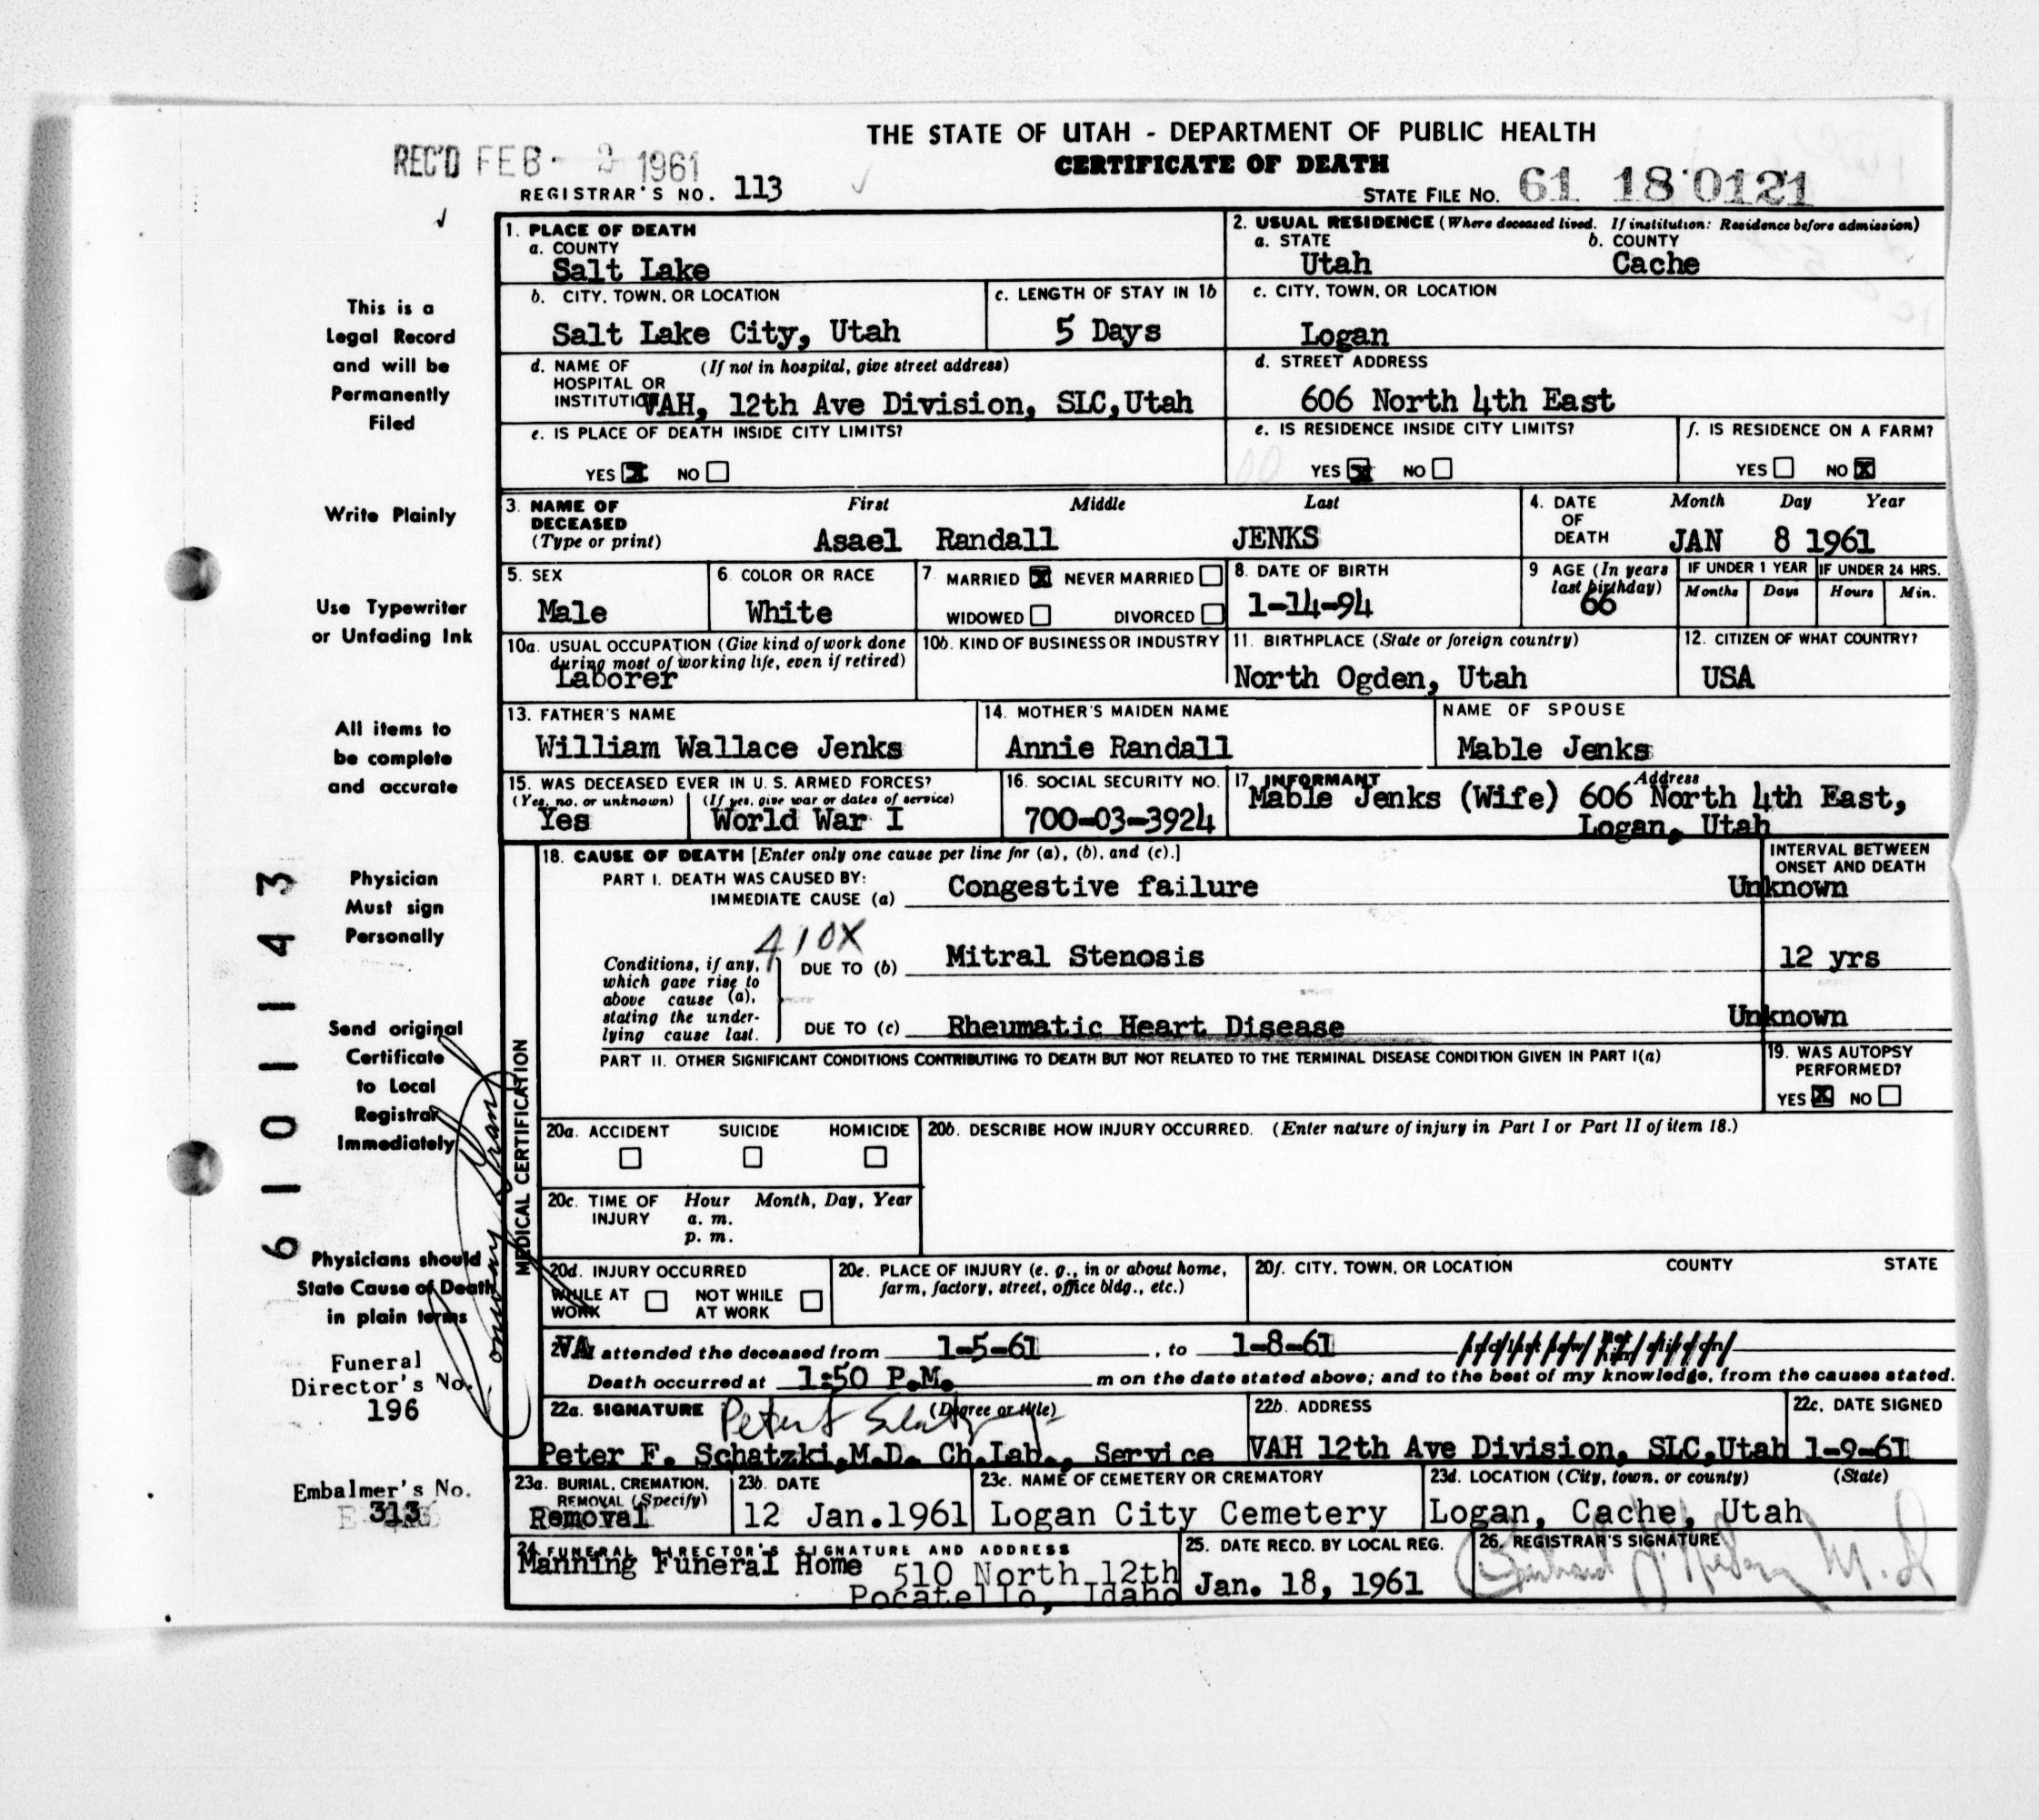 THE STATE OF UTAH - DEPARTMENT OF PUBLIC HEALTH
CERTIFICATE OF DEATH
REC'D FEB - 2 1961
REGISTRAR'S NO. 113
STATE FILE NO. 61 18 0121
This is a
Legal Record
and will be
Permanently
Filed
Write Plainly
Use Typewriter
or Unfading Ink
All items to
be complete
and accurate
Physician
Must sign
Personally
Send original
Certificate
to Local
Registrar
Immediately
Physicians should
State Cause of Death
in plain terms
Funeral
Director's No.
196
Embalmer's No.
313
6101143
1. PLACE OF DEATH
a. COUNTY
Salt Lake
2. USUAL RESIDENCE (Where deceased lived. If institution: Residence before admission)
a. STATE b. COUNTY
Utah Cache
b. CITY, TOWN, OR LOCATION
Salt Lake City, Utah
c. LENGTH OF STAY IN 1b
5 Days
c. CITY, TOWN, OR LOCATION
Logan
d. NAME OF (If not in hospital, give street address)
HOSPITAL OR
INSTITUTION VAH, 12th Ave Division, SLC,Utah
d. STREET ADDRESS
606 North 4th East
e. IS PLACE OF DEATH INSIDE CITY LIMITS?
YES X NO
e. IS RESIDENCE INSIDE CITY LIMITS?
YES X NO
f. IS RESIDENCE ON A FARM?
YES NO X
3. NAME OF First Middle Last
DECEASED
(Type or print) Asael Randall JENKS
4. DATE Month Day Year
OF
DEATH JAN 8 1961
5. SEX
Male
6. COLOR OR RACE
White
7. MARRIED X NEVER MARRIED
WIDOWED DIVORCED
8. DATE OF BIRTH
1-14-94
9 AGE (In years
last birthday)
66
IF UNDER 1 YEAR IF UNDER 24 HRS.
Months Days Hours Min.
10a. USUAL OCCUPATION (Give kind of work done
during most of working life, even if retired)
Laborer
10b. KIND OF BUSINESS OR INDUSTRY
11. BIRTHPLACE (State or foreign country)
North Ogden, Utah
12. CITIZEN OF WHAT COUNTRY?
USA
13. FATHER'S NAME
William Wallace Jenks
14. MOTHER'S MAIDEN NAME
Annie Randall
NAME OF SPOUSE
Mable Jenks
15. WAS DECEASED EVER IN U. S. ARMED FORCES?
(Yes, no. or unknown) (If yes, give war or dates of service)
Yes World War I
16. SOCIAL SECURITY NO.
700-03-3924
17. INFORMANT Address
Mable Jenks (Wife) 606 North 4th East,
Logan, Utah
MEDICAL CERTIFICATION
18. CAUSE OF DEATH [Enter only one cause per line for (a), (b), and (c).]
INTERVAL BETWEEN
ONSET AND DEATH
PART I. DEATH WAS CAUSED BY:
IMMEDIATE CAUSE (a) Congestive failure Unknown
410X
Conditions, if any,
which gave rise to
above cause (a),
stating the under-
lying cause last.
DUE TO (b) Mitral Stenosis 12 yrs
DUE TO (c) Rheumatic Heart Disease Unknown
PART II. OTHER SIGNIFICANT CONDITIONS CONTRIBUTING TO DEATH BUT NOT RELATED TO THE TERMINAL DISEASE CONDITION GIVEN IN PART I(a)
19. WAS AUTOPSY
PERFORMED?
YES X NO
20a. ACCIDENT SUICIDE HOMICIDE
20b. DESCRIBE HOW INJURY OCCURRED. (Enter nature of injury in Part I or Part II of item 18.)
20c. TIME OF Hour Month, Day, Year
INJURY a. m.
p. m.
20d. INJURY OCCURRED
WHILE AT NOT WHILE
WORK AT WORK
20e. PLACE OF INJURY (e. g., in or about home,
farm, factory, street, office bldg., etc.)
20f. CITY, TOWN, OR LOCATION COUNTY STATE
VA attended the deceased from 1-5-61, to 1-8-61
Death occurred at 1:50 P.M. m on the date stated above; and to the best of my knowledge, from the causes stated.
22a. SIGNATURE (Degree or title)
Peter F. Schatzki,M.D. Ch.Lab., Service
22b. ADDRESS
VAH 12th Ave Division, SLC,Utah
22c. DATE SIGNED
1-9-61
23a. BURIAL, CREMATION,
REMOVAL (Specify)
Removal
23b. DATE
12 Jan.1961
23c. NAME OF CEMETERY OR CREMATORY
Logan City Cemetery
23d. LOCATION (City, town, or county) (State)
Logan, Cache, Utah
24. FUNERAL DIRECTOR'S SIGNATURE AND ADDRESS
Manning Funeral Home 510 North 12th
Pocatello, Idaho
25. DATE RECD. BY LOCAL REG.
Jan. 18, 1961
26. REGISTRAR'S SIGNATURE
M.D